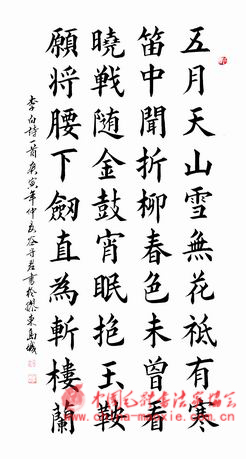 五月天山雪無花祗有寒
笛中聞折柳春色未曾看
曉戦随金鼓宵眠抱玉鞍
願将腰下劒直為斬樓蘭
李白詩一首庚寅年仲